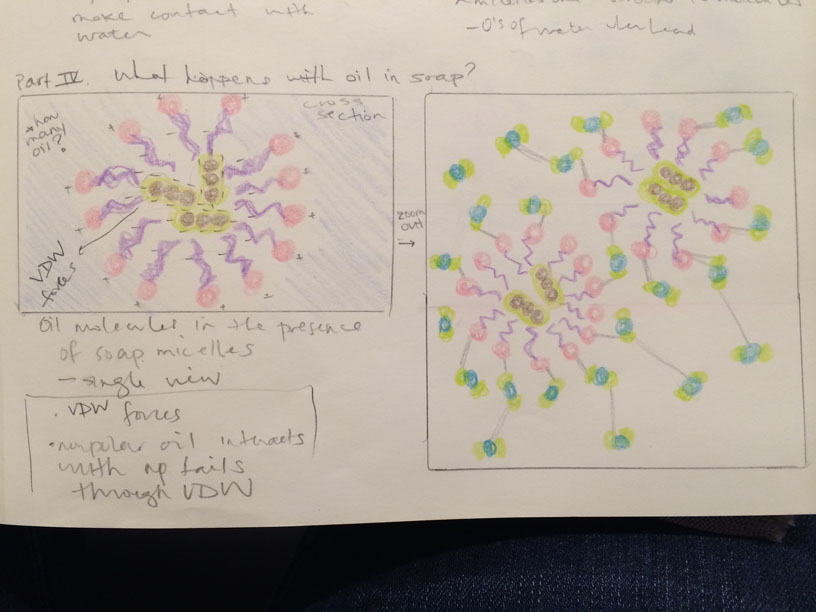 make contact with
water
- O's of water
Part IV. What happens with oil in soap?
* how
many
oil?
cross
section
VDW
forces
zoom
out
→
Oil molecules in the presence
of soap micelles
- single view
• VDW forces
• nonpolar oil interacts
with np tails
through VDW